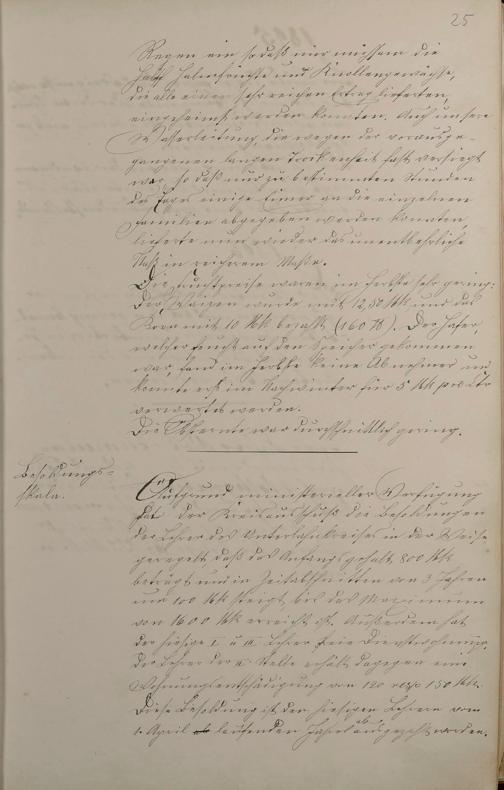 25
Regen ein, so daß nur mühsam die
Halmfrüchte und Knollengewächse,
die alle einen sehr reichen Ertrag lieferten,
eingeheimst werden konnten. Auch unsere
Wasserleitung, die wegen der vorausge-
gangenen langen Trockenheit fast versiegt
war, so daß nur zu bestimmten Stunden
des Tages einige Eimer an die einzelnen
Familien abgegeben werden konnten,
lieferte nun wieder das unentbehrliche
Naß in reichem Maße.
Die Fruchtpreise waren im Herbste sehr gering:
Der Weizen wurde mit 12,50 Mk und das
Korn mit 10 Mk bezahlt (160 ℔). Der Hafer,
welcher feucht auf den Speicher gekommen
war, fand im Herbste keine Abnehmer und
konnte erst im Nachwinter für 5 Mk pro Ctr
verwertet werden.
Die Obsternte war durchschnittlich gering.
Besoldungs-
skala.
Aufgrund ministerieller Verfügung
hat der Kreisausschuß die Besoldungen
der Lehrer des Unterlahnkreises in der Weise
geregelt, daß das Anfangsgehalt 800 Mk
beträgt und in Zeitabschnitten von 3 Jahren
um 100 Mk steigt, bis das Maximum
von 1600 Mk erreicht ist. Außerdem hat
der hiesige I. u. Lehrer freie Dienstwohnung,
der Lehrer der Stelle erhält dagegen eine
Wohnungsentschädigung von 120 resp. 150 Mk.
Diese Besoldung ist den hiesigen Lehrern vom
1. April laufenden Jahres ab ausgezahlt worden.